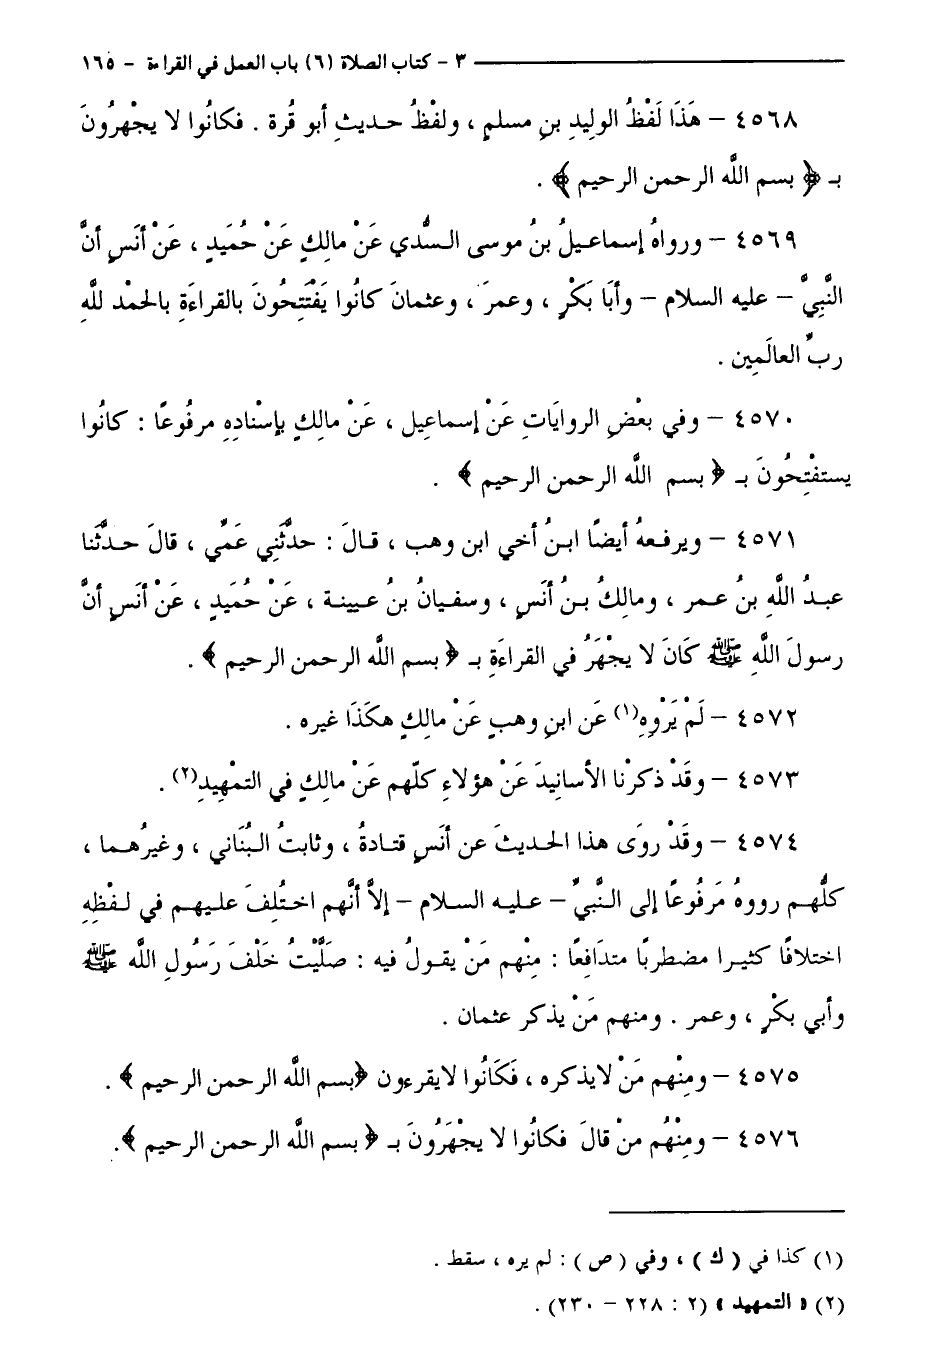 ٣ - كتاب الصلاة (٦) باب العمل في القراءة - ١٦٥
٤٥٦٨ - هَذَا لَفْظُ الوليدِ بنِ مسلمٍ ، ولفْظُ حديثِ أبو قُرة . فكانُوا لا يجْهرُونَ
بـ ﴿ بسم اللَّه الرحمن الرحيم ﴾ .
٤٥٦٩ - ورواهُ إسماعيلُ بنُ موسى السُّدي عَنْ مالكٍ عَنْ حُمَيدٍ ، عَنْ أنَسٍ أنَّ
النَّبِيَّ - عليه السلام - وأبَا بَكْرٍ ، وعمرَ ، وعثمانَ كانُوا يَفْتَتِحُونَ بالقراءَةِ بالحمْد للَّهِ
ربِّ العالَمِين .
٤٥٧٠ - وفي بعْضِ الروايَاتِ عَنْ إسماعِيل ، عَنْ مالكٍ بإسْنادِهِ مرفُوعًا : كانُوا
يستفْتِحُونَ بـ ﴿ بسم اللَّه الرحمن الرحيم ﴾ .
٤٥٧١ - ويرفعهُ أيضًا ابنُ أخي ابن وهب ، قالَ : حدَّثَنِي عَمِّي ، قالَ حدَّثَنا
عبدُ اللَّهِ بنُ عمر ، ومالكُ بنُ أنَسٍ ، وسفيانُ بنُ عيينة ، عَنْ حُمَيَدٍ ، عَنْ أنَسٍ أنَّ
رسولَ اللَّهِ ﷺ كَانَ لا يجْهَرُ في القراءَةِ بـ ﴿ بسم اللَّه الرحمن الرحيم ﴾ .
٤٥٧٢ - لَمْ يَرْوِهِ(١) عَن ابنِ وهبٍ عَنْ مالكٍ هكَذَا غيره .
٤٥٧٣ - وقَدْ ذكرْنا الأسانِيدَ عَنْ هؤلاءِ كلّهم عَنْ مالكٍ في التمْهِيدِ(٢) .
٤٥٧٤ - وقَدْ روَى هذا الحديثَ عن أنَسٍ قتادةُ ، وثابتُ البُنَاني ، وغيرُهما ،
كلُّهم رووهُ مَرفُوعًا إلى النَّبيِّ - عليه السلام - إلاَّ أنَّهم اختُلِفَ عليهم في لفْظِهِ
اختلافًا كثيرا مضطربًا متدَافِعًا : مِنْهم مَنْ يقولُ فيه : صَلَّيْتُ خَلْفَ رَسُولِ اللَّه ﷺ
وأبي بكْرٍ ، وعمر . ومنهم مَنْ يذكر عثمان .
٤٥٧٥ - ومِنْهم مَنْ لايذكره ، فَكَانُوا لايقرءون ﴿بسم اللَّه الرحمن الرحيم ﴾ .
٤٥٧٦ - ومِنْهُم منْ قالَ فكانُوا لا يجْهَرُونَ بـ ﴿ بسم اللَّه الرحمن الرحيم ﴾.
(١) كذا في ( ك ) ، وفي ( ص ) : لم يره ، سقط .
(٢) « التمهيد » (٢ : ٢٢٨ - ٢٣٠) .